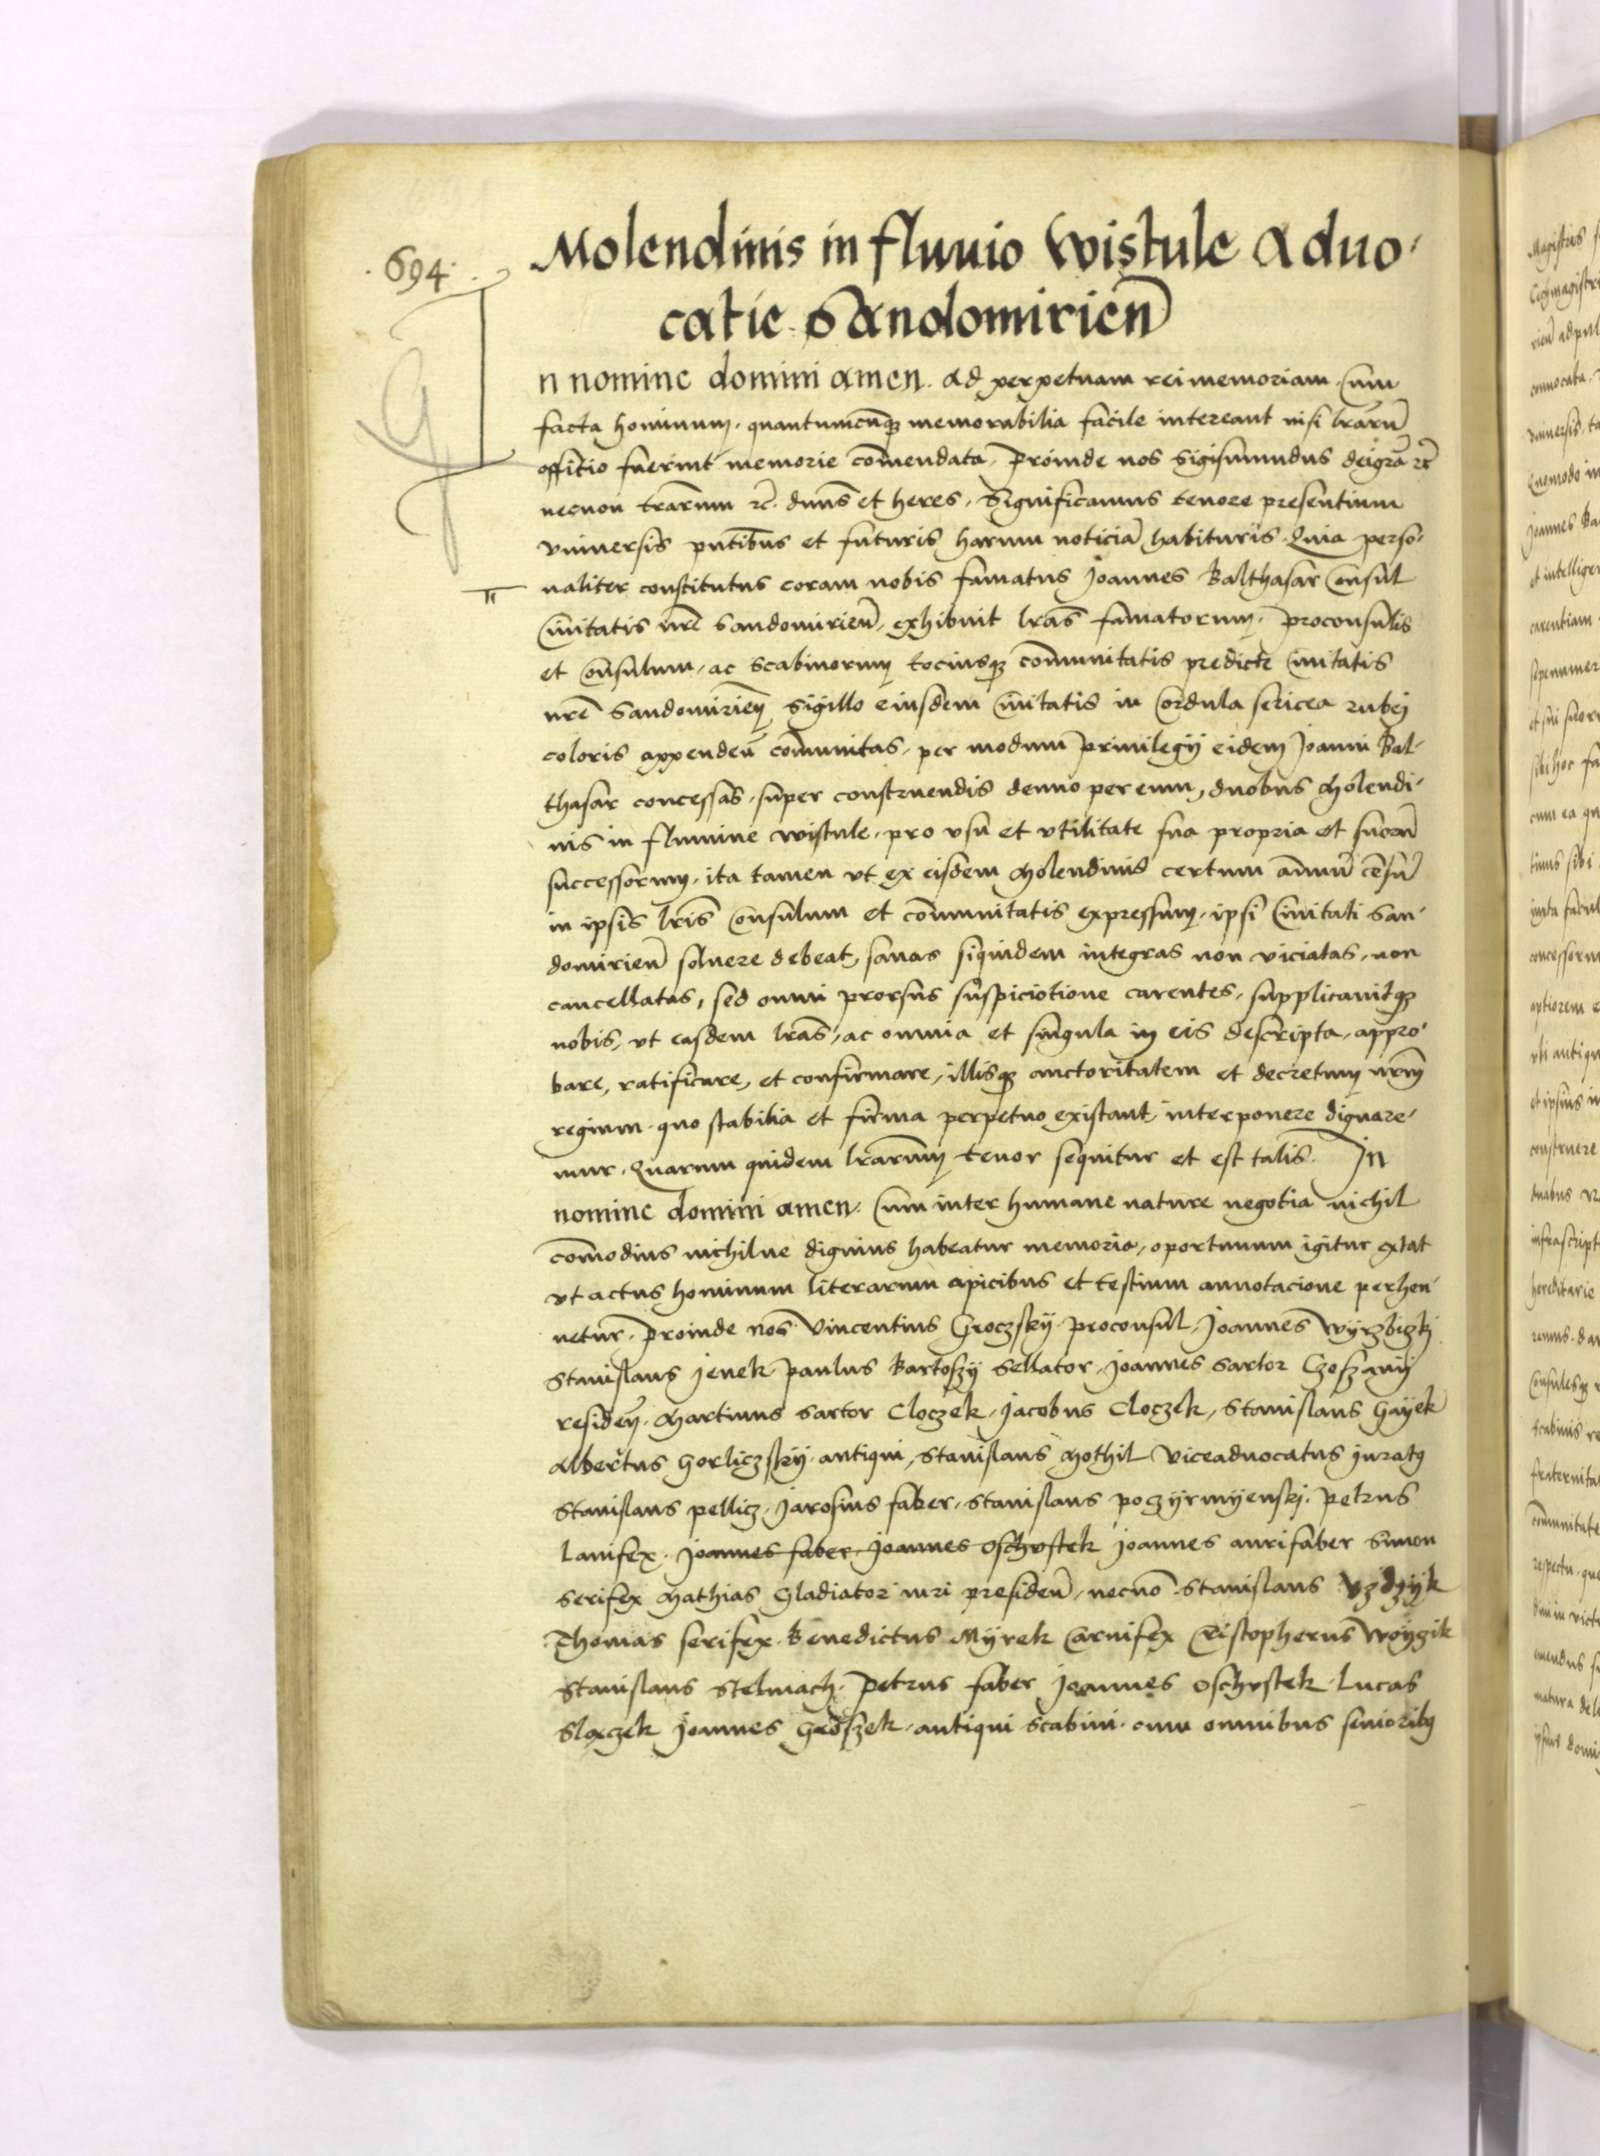 .694.
Molendinis in fluuio Wistule Aduo-
catie Sandomirien̄
In nomine domini amen. Ad perpetuam rei memoriam. Cum
facta hominum, quantumcūqꝫ memorabilia facile intereant nisi lrārū
offitio fuerint memorie com̄endata, Proinde nos Sigismundus dei gra̅ ꝛc̄
necnon tr̄arum ꝛc̄. dn̄us et heres, Significamus tenore presentium
vniuersis pn̄tibus et futuris harum noticia̅ habituris. Quia perso-
naliter constitutus coram nobis famatus Joannes Balthasar Consul
Ciuitatis nr̄e Sandomirien̄, exhibuit lr̄as famatorum, Proconsulis
et Consulum, ac Scabinorum tociusqꝫ com̄unitatis predicte Ciuitatis
nr̄e Sandomirien̄ Sigillo eiusdem Ciuitatis in Cordula sericea rubej
coloris appenden̄ com̄unitas, per modum Priuilegij eidem Joanni Bal-
thasar concessas, super construendis denuo per eum, duobus Molendi-
nis in flumine Wistule, pro vsu et vtilitate sua propria et suorū
successorum, ita tamen vt ex eisdem Molendinis certum an̄uu̅ ce̅su̅
in ipsis lr̄is Consulum et com̄unitatis expressum, ipsi Ciuitati San-
domirien̄ soluere debeat, sanas siquidem integras non viciatas, non
cancellatas, sed omni prorsus suspiciotione carentes, supplicauitqꝫ
nobis, vt easdem lr̄as, ac omnia et singula in eis descripta, appro-
bare, ratificare, et confirmare, illisqꝫ auctoritatem et decretum nr̄m
regium, quo stabilia et firma perpetuo existant, interponere dignare-
mur. Quarum quidem lr̄arum tenor sequitur et est talis. In
nomine domini amen. Cum inter humane nature negotia nichil
com̄odius nichilue dignius habeatur memoria, oportunum igitur extat
vt actus hominum literarum apicibus et testium annotacione perhen-
netur. Proinde nos Vincentius Groczsky Proconsul, Joannes Wyrzbiczkj
Stanislaus Jenek Paulus Bartoszy Sellator, Joannes Sartor Czoszany
residen̄, Martinus Sartor Cloczek, Jacobus Cloczek, Stanislaus Gayek
Albertus Gorliczsky antiqui, Stanislaus Mothil Viceaduocatus iuratꝯ
Stanislaus Pellicz, Jarosius faber, Stanislaus Poczyrmyenskj, Petrus
Lanifex, Joannes faber, Joannes Oschvstek Joannes aurifaber Simon
Serifex Mathias Gladiator iuri presiden̄, necno̅ Stanislaus Vzdzyk
Thomas serifex Benedictus Myrek Carnifex Cristopherus Woyzik
Stanislaus Stelmach, Petrus faber Joannes Oschvstek Lucas
Sloczek Joannes Groszek antiqui Scabini, cum omnibus senioribꝯ